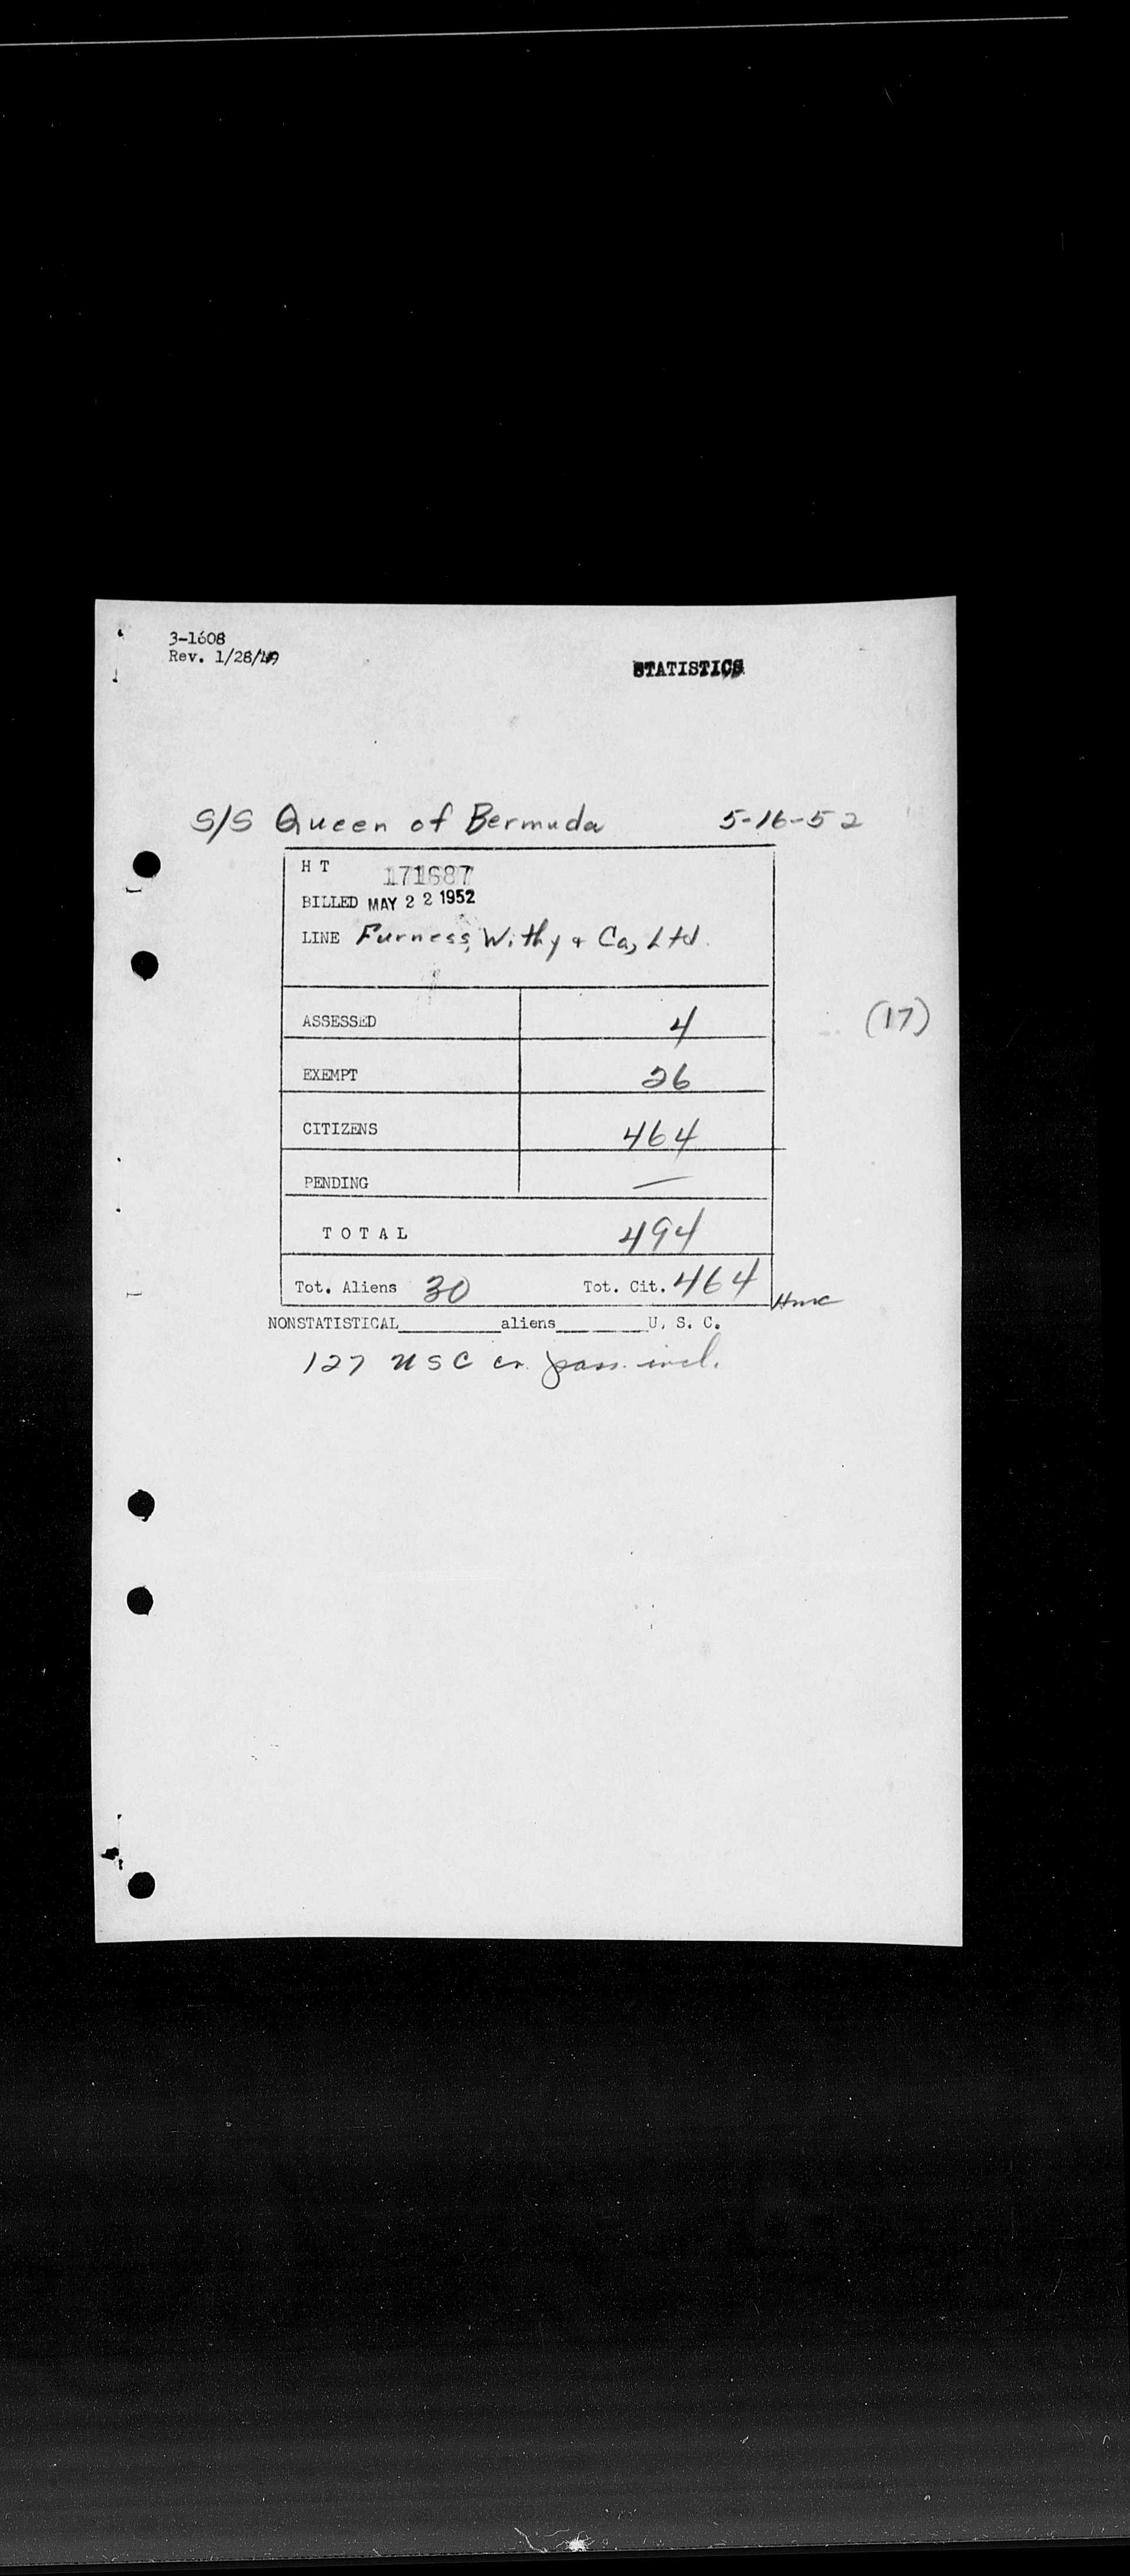 3-1608
Rev. 1/28/49
STATISTICS
S/S Queen of Bermuda 5-16-52
H T 171687
BILLED MAY 22 1952
LINE Furness, Withy & Co, Ltd.
ASSESSED 4 (17)
EXEMPT 26
CITIZENS 464
PENDING —
TOTAL 494
Tot. Aliens 30 Tot. Cit. 464
NONSTATISTICAL________aliens________U. S. C.
127 USC cr. pass. incl.